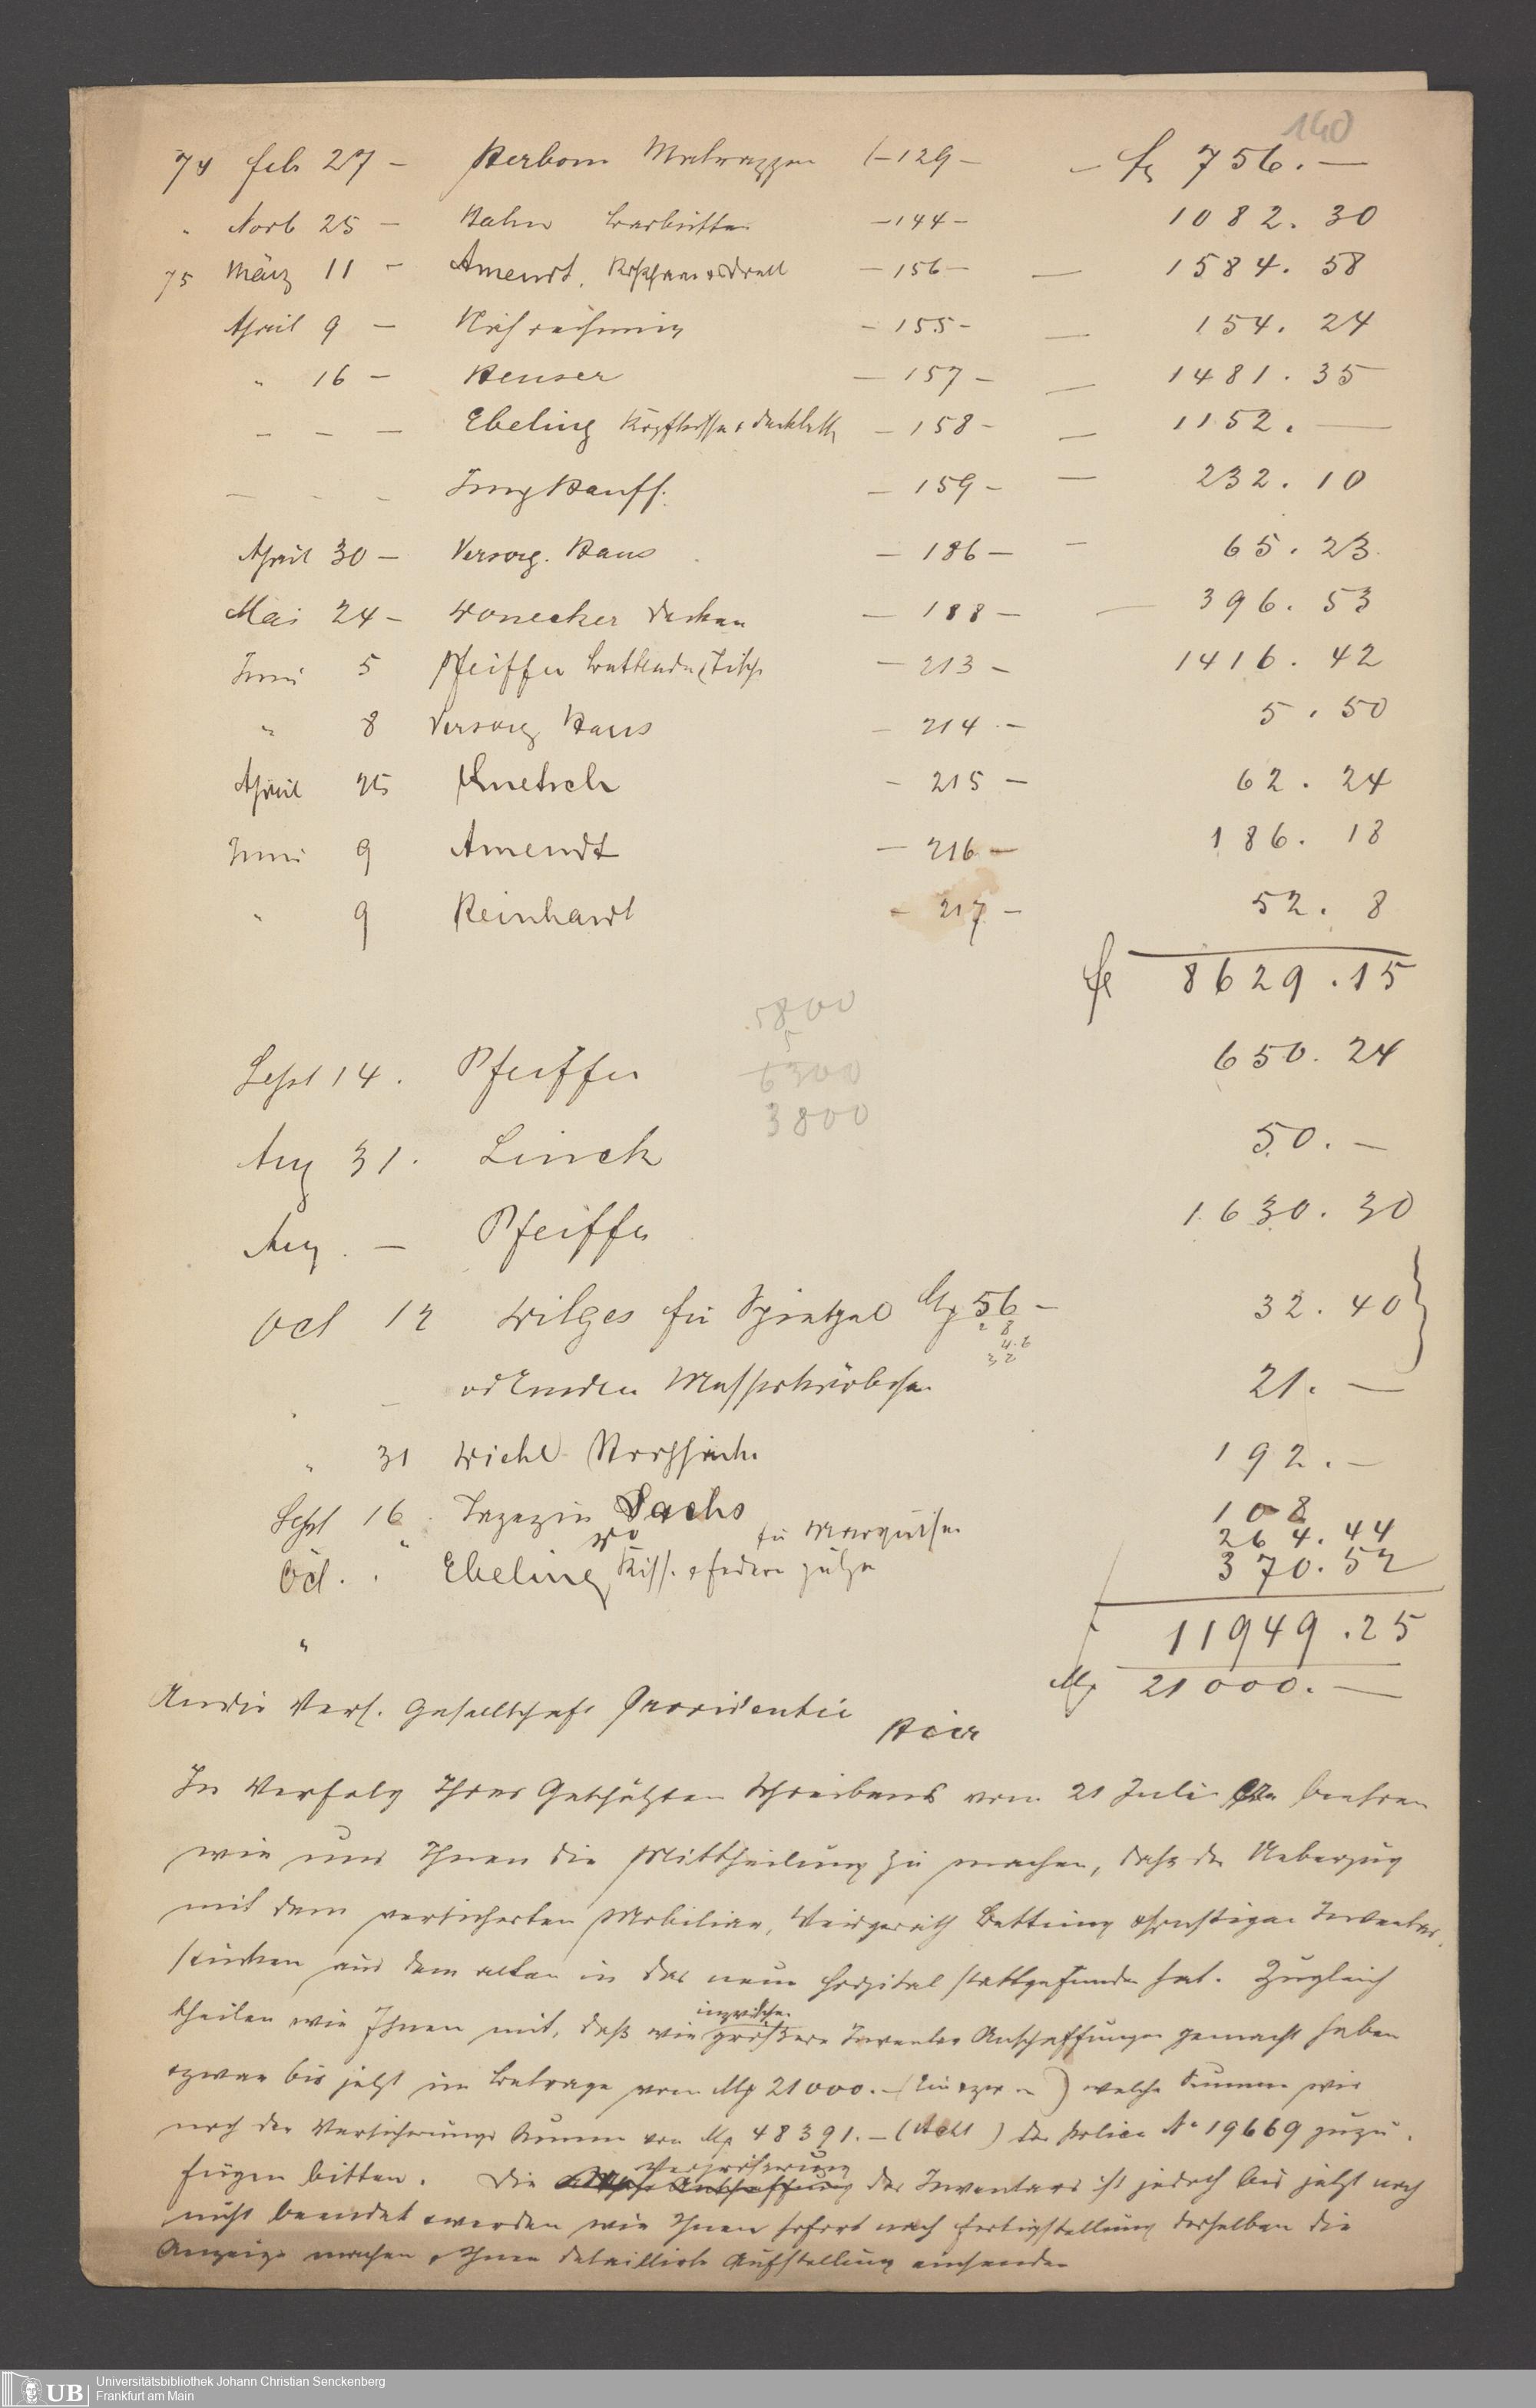 140
74 Feb 27 – Herborn Matrazzen (– 129 – – fl 756. –
" Novb 25 – Hahn – 144 – 1082. 30
75 März 11 – Amendt, Roßhaar & Drell – 156 – – 1584. 58
April 9 – – 155 – – 154. 24
" 16 – Heuser – 157 – – 1481. 35
– – – Ebeling Kopfkissen & Deckbett – 158 – – 1152. –
– – – Jung Hauff. – 159 – – 232. 10
April 30 – Versorg. Haus – 186 – – 65. 23
Mai 24 – Wonecker Decken – 188 – – 396. 53
Juni 5 Pfeiffer Bettladen, Tische – 213 – 1416. 42
" 8 Versorg Haus – 214 – 5. 50
April 25 Knetsch – 215 – 62. 24
Juni 9 Amendt – 216 – 186. 18
" 9 Reinhardt – 217 – 52. 8
fl 8629. 15
5800
Sept 14. Pfeiffer 650. 24
6300
3800
Aug 31. Linck 50. –
Aug. – Pfeiffer 1630. 30
Oct 12 Wilges für Spiegel M 56 – 32. 40
" – 21. –
" 31 Wiehl 192. –
Sept 16. Tapezier Sachs 108
" do für Marquisen 264. 44
Oct. " Ebeling Kiss. & Federn 370. 52
"
f 11949. 25
M 21000. –
An die Vers. Gesellschaft Providentia
Hier
In Verfolg Ihres Geschätzten Schreibens vom 21 Juli beehren
wir uns Ihnen die Mittheilung zu machen, daß der Ueberzug
mit dem versicherten Mobiliar, Weisgeräth Bettung & sonstigen Inventar-
stücken aus dem alten in das neue Hospital stattgefunden hat. Zugleich
theilen wir Ihnen mit, daß wir inzwischen größere Inventar Anschaffungen gemacht haben
& zwar bis jetzt im Betrage von M 21000. – ( ) welche Summe wir
noch der Versicherungs Summe von M 48391. – (Acht ) der Police No 19669 zuzu-
fügen bitten. Die Vergrößerung des Inventars ist jedoch bis jetzt noch
nicht beendet & werden wir Ihnen sofort nach Fertigstellung derselben die
Anzeige machen & Ihnen detaillirte Aufstellung einsenden
UB Universitätsbibliothek Johann Christian Senckenberg
Frankfurt am Main